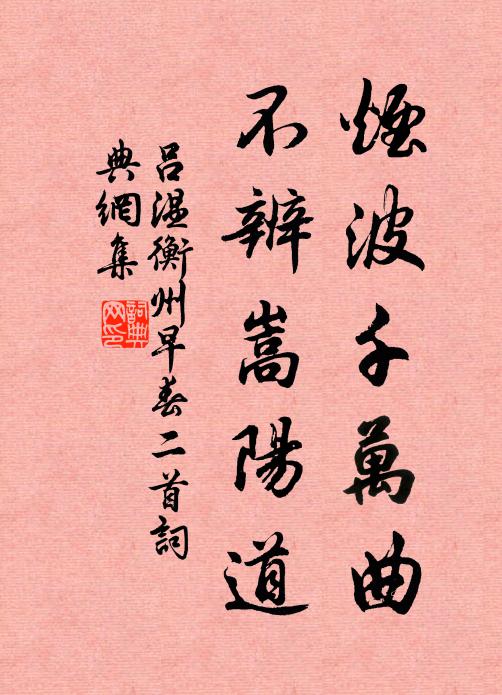 煙波千萬曲
不辨嵩陽道
吕温衡州早春二首詞
典網集
詞典网印